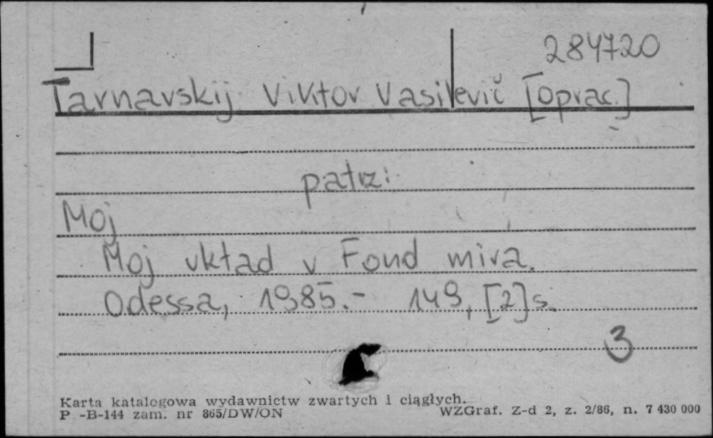 284720
Tarnavskij Viktor Vasilevič [oprac.]
patrz:
Moj
Moj vkład v Fond mira.
Odessa, 1985.- 149, [2] s.
3
Karta katalogowa wydawnictw zwartych i ciągłych.
P -B-144 zam. nr 865/DW/ON
WZGraf. Z-d 2, z. 2/86, n. 7 430 000